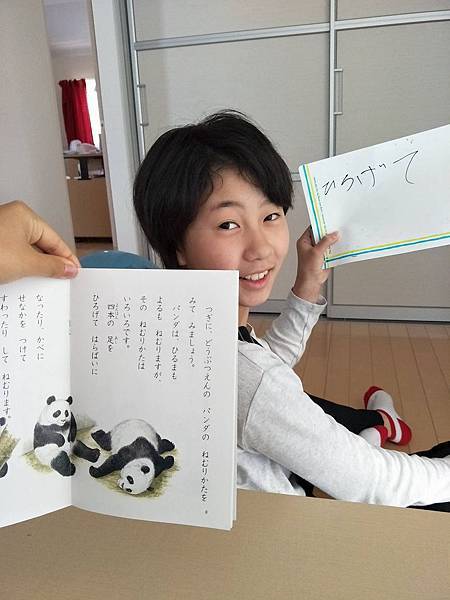 つぎに、どうぶつえんの パンダの ねむりかたを
みて みましょう。
パンダは ひるまも
よるも ねむりますが、
その ねむりかたは
いろいろです。
四本の 足を
ひろげて はらばいに
なったり、かべに
せなかを つけて
すわったり して ねむります。
ひろげて